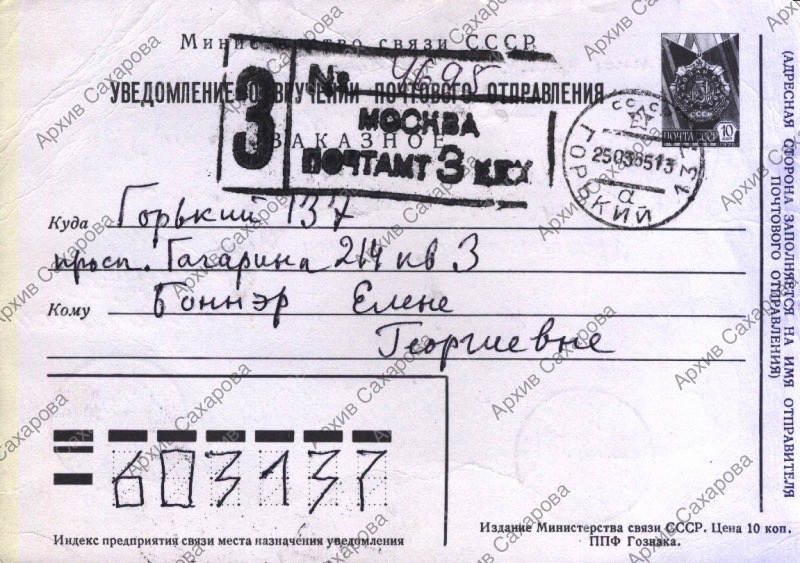 Министерство связи СССР
УВЕДОМЛЕНИЕ О ВРУЧЕНИИ ПОЧТОВОГО ОТПРАВЛЕНИЯ
ЗАКАЗНОЕ
З
№ 4695
МОСКВА
ПОЧТАМТ 3
ПОЧТА СССР 10
СССР
25038513
а
ГОРЬКИЙ 137
Куда Горький 137
просп. Гагарина 214 кв 3
Кому Боннэр Елене
Георгиевне
603137
Индекс предприятия связи места назначения уведомления
Издание Министерства связи СССР. Цена 10 коп.
ППФ Гознака.
(АДРЕСНАЯ СТОРОНА ЗАПОЛНЯЕТСЯ НА ИМЯ ОТПРАВИТЕЛЯ
ПОЧТОВОГО ОТПРАВЛЕНИЯ)
Архив Сахарова